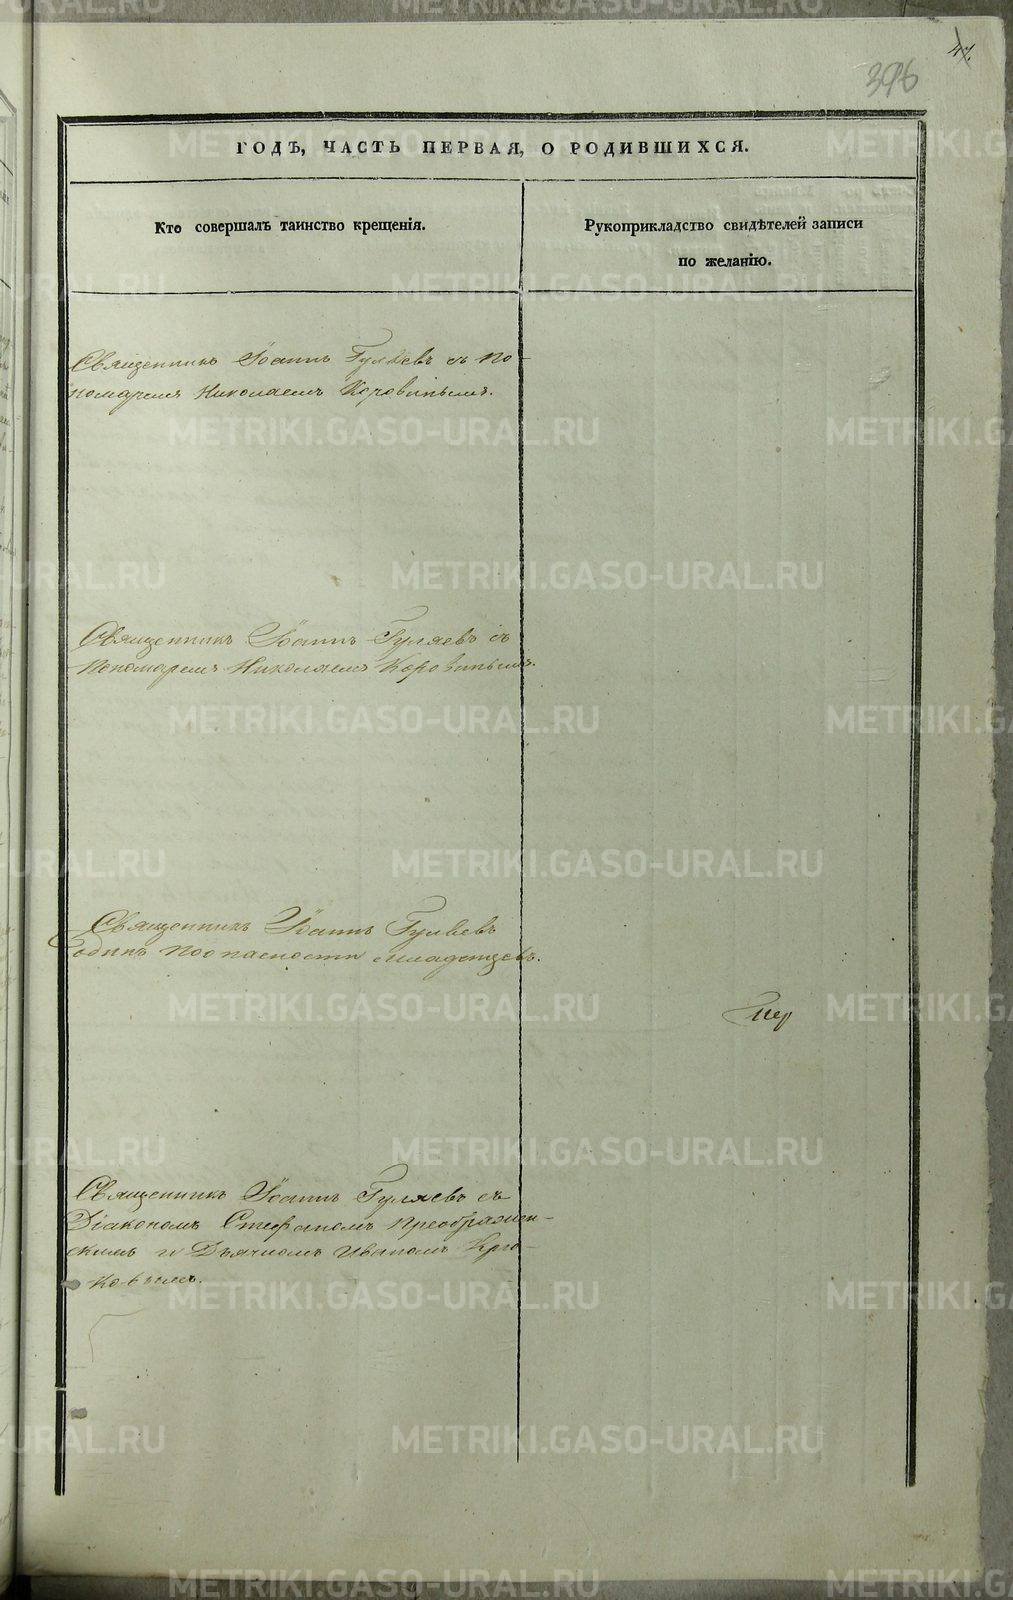 47.
396
ГОДЪ, ЧАСТЬ ПЕРВАЯ, О РОДИВШИХСЯ.
Кто совершалъ таинство крещенія.
Рукоприкладство свидѣтелей записи
по желанію.
Священникъ Іоаннъ Гуляевъ съ По-
номаремъ Николаемъ Коровинымъ.
Священникъ Іоаннъ Гуляевъ съ
Пономаремъ Николаемъ Коровинымъ.
Священникъ Іоаннъ Гуляевъ
одинъ по опасности младенцевъ.
Священникъ Іоаннъ Гуляевъ съ
Діакономъ Стефаномъ Преображен-
скимъ и Дьячкомъ Иваномъ Крю-
ковымъ.
METRIKI.GASO-URAL.RU